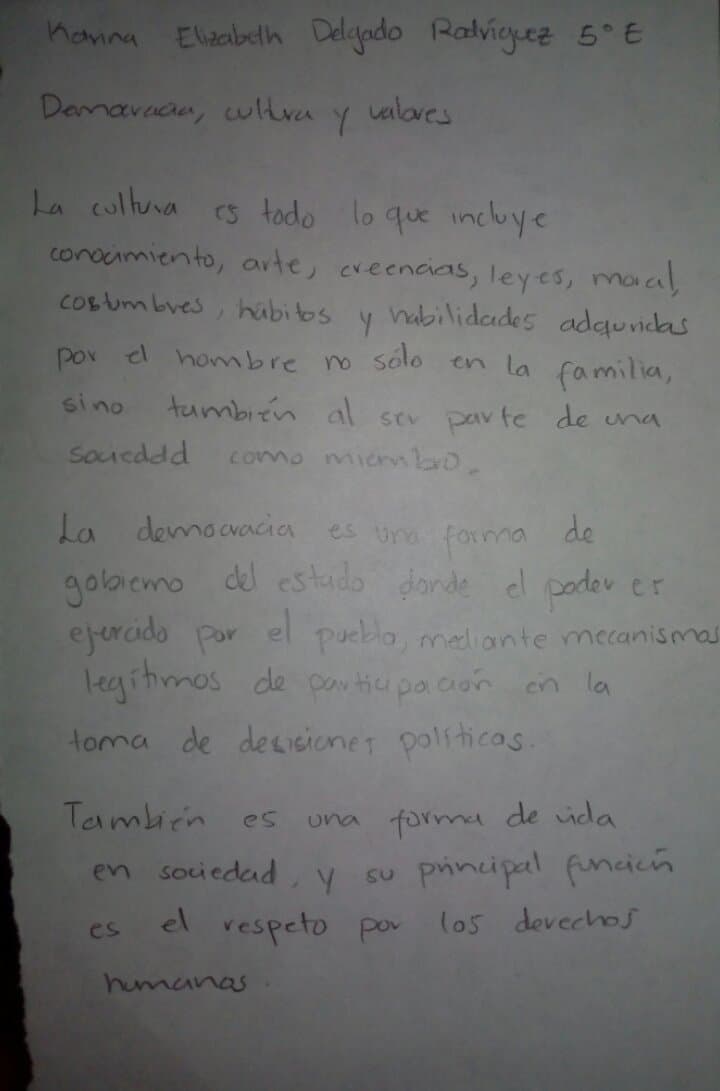 Karina Elizabeth Delgado Rodríguez 5° E
Democracia, cultura y valores
La cultura es todo lo que incluye
conocimiento, arte, creencias, leyes, moral,
costumbres, hábitos y habilidades adquridas
por el hombre no sólo en la familia,
sino también al ser parte de una
socieddd como miembro.
La democracia es una forma de
gobierno del estado donde el poder es
ejercido por el pueblo, mediante mecanismos
legítimos de participación en la
toma de desisiones políticas.
También es una forma de vida
en sociedad, y su principal función
es el respeto por los derechos
humanas.